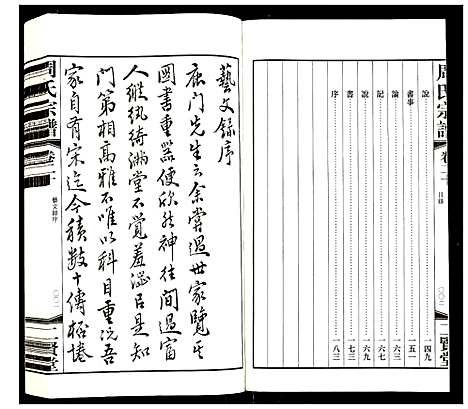 周氏宗譜
卷二
目錄
二賢堂
說 一四九
書事 一五一
論 一六三
記 一六六
說 一六九
書 一七三
序 一八三
藝文錄序
鹿門先生云余嘗過世家覽其
圖書重器便欣然神往間過富
人縱紈綺滿堂不覺羞澀以是知
門第相高雅不唯以科目重況吾
家自有宋迄今積數十傳
周氏宗譜
卷二
藝文錄序
二賢堂